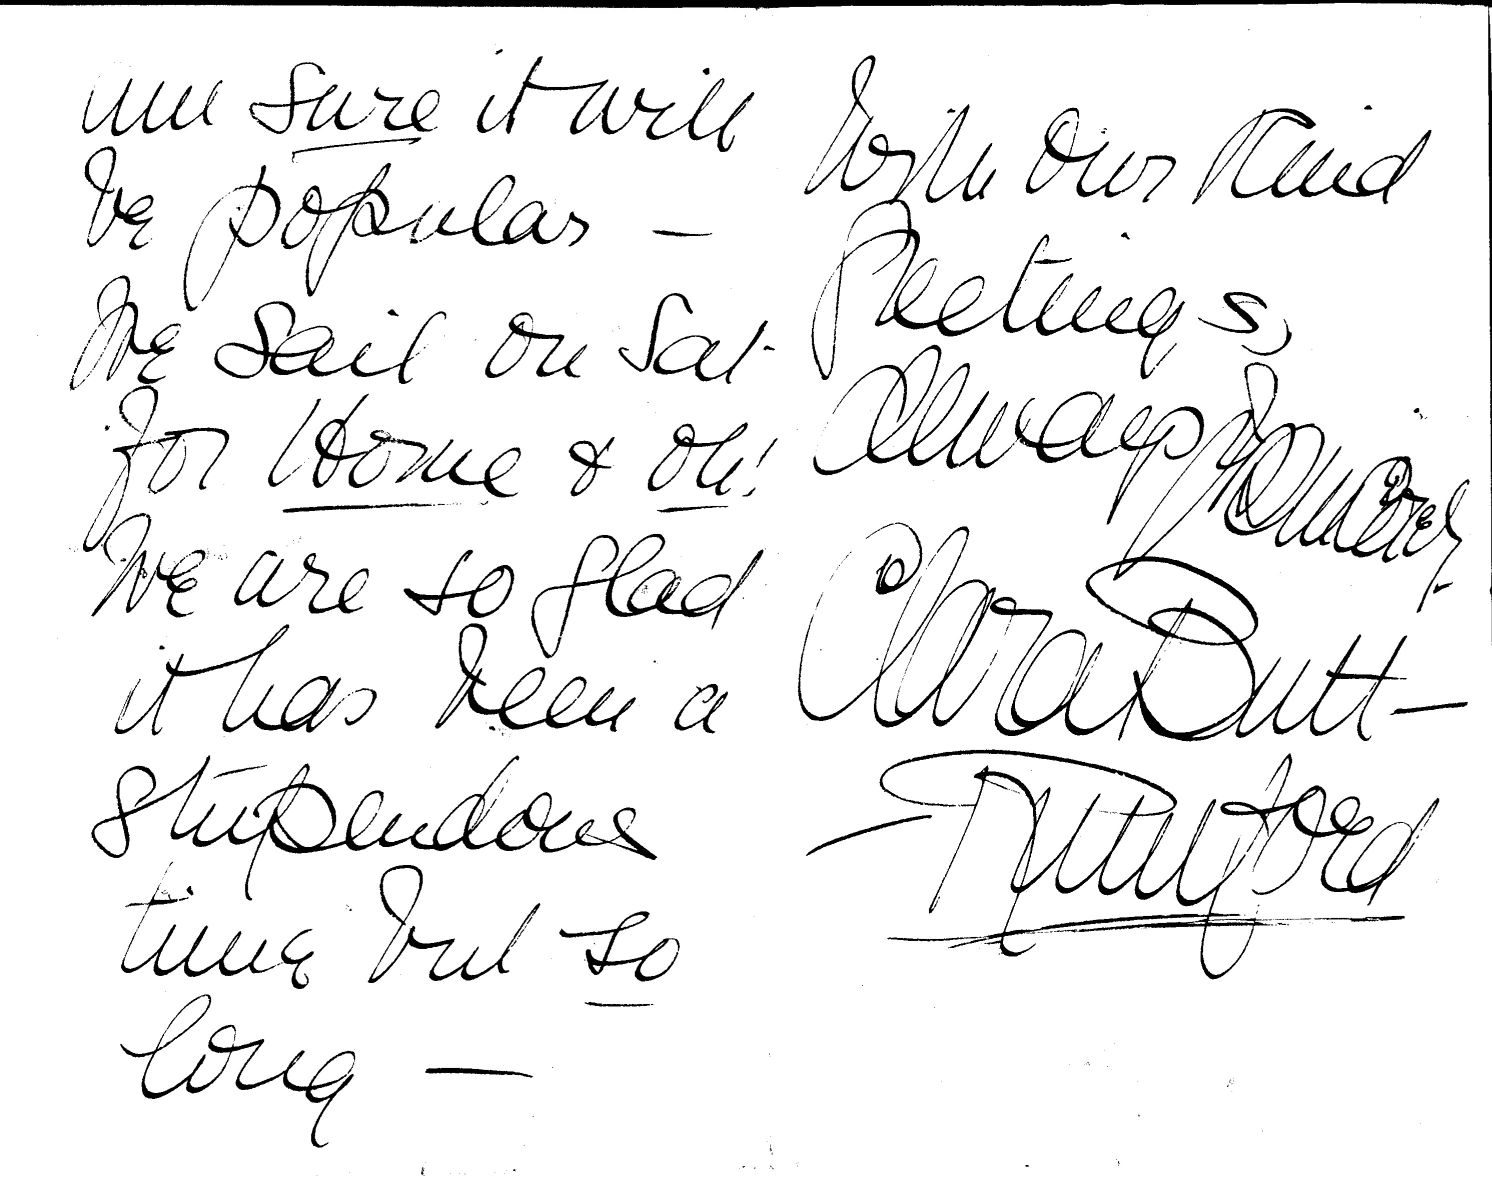 am sure it will
be popular —
We sail on Sat.
for Home & oh!
We are so glad
it has been a
stupendous
time but so
long —
With our kind
Greetings,
Always Sincerely
Clara Butt —
Rumford